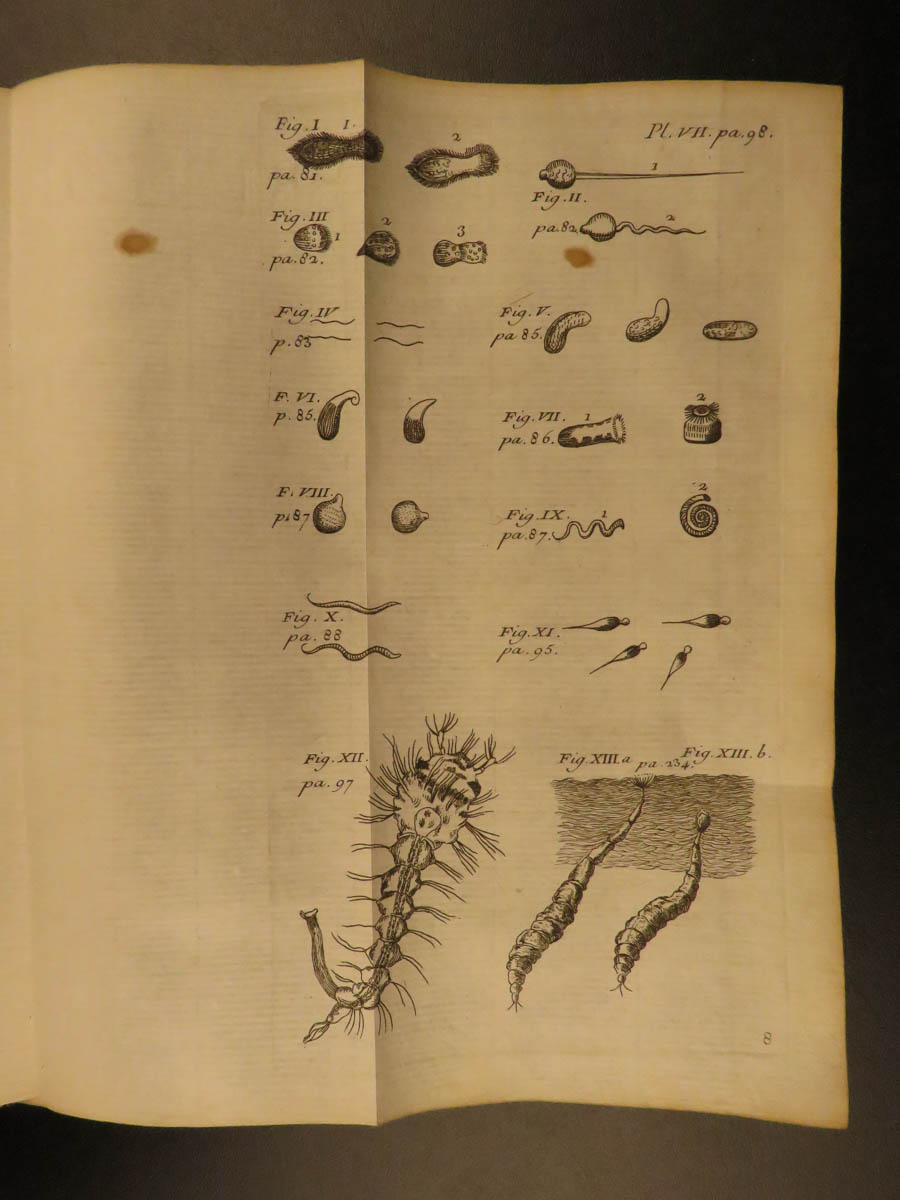 Pl. VII. pa. 98.
Fig. I 1. 2
pa. 81.
1
Fig. II.
pa. 82. 2
Fig. III 1 2 3
pa. 82.
Fig. IV
p. 83
Fig. V.
pa 85.
F. VI.
p. 85.
Fig. VII. 1 2
pa. 86.
F. VIII.
p. 87
Fig. IX. 1 2
pa. 87.
Fig. X.
pa. 88
Fig. XI.
pa. 95.
Fig. XII.
pa. 97
Fig. XIII. a pa. 234. Fig. XIII. b.
8